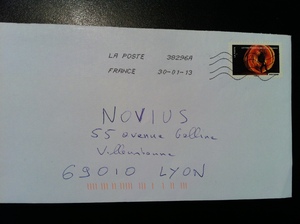 LA POSTE 38296A
FRANCE 30-01-13
NOVIUS
55 avenue Galline
Villeurbanne
69010 LYON